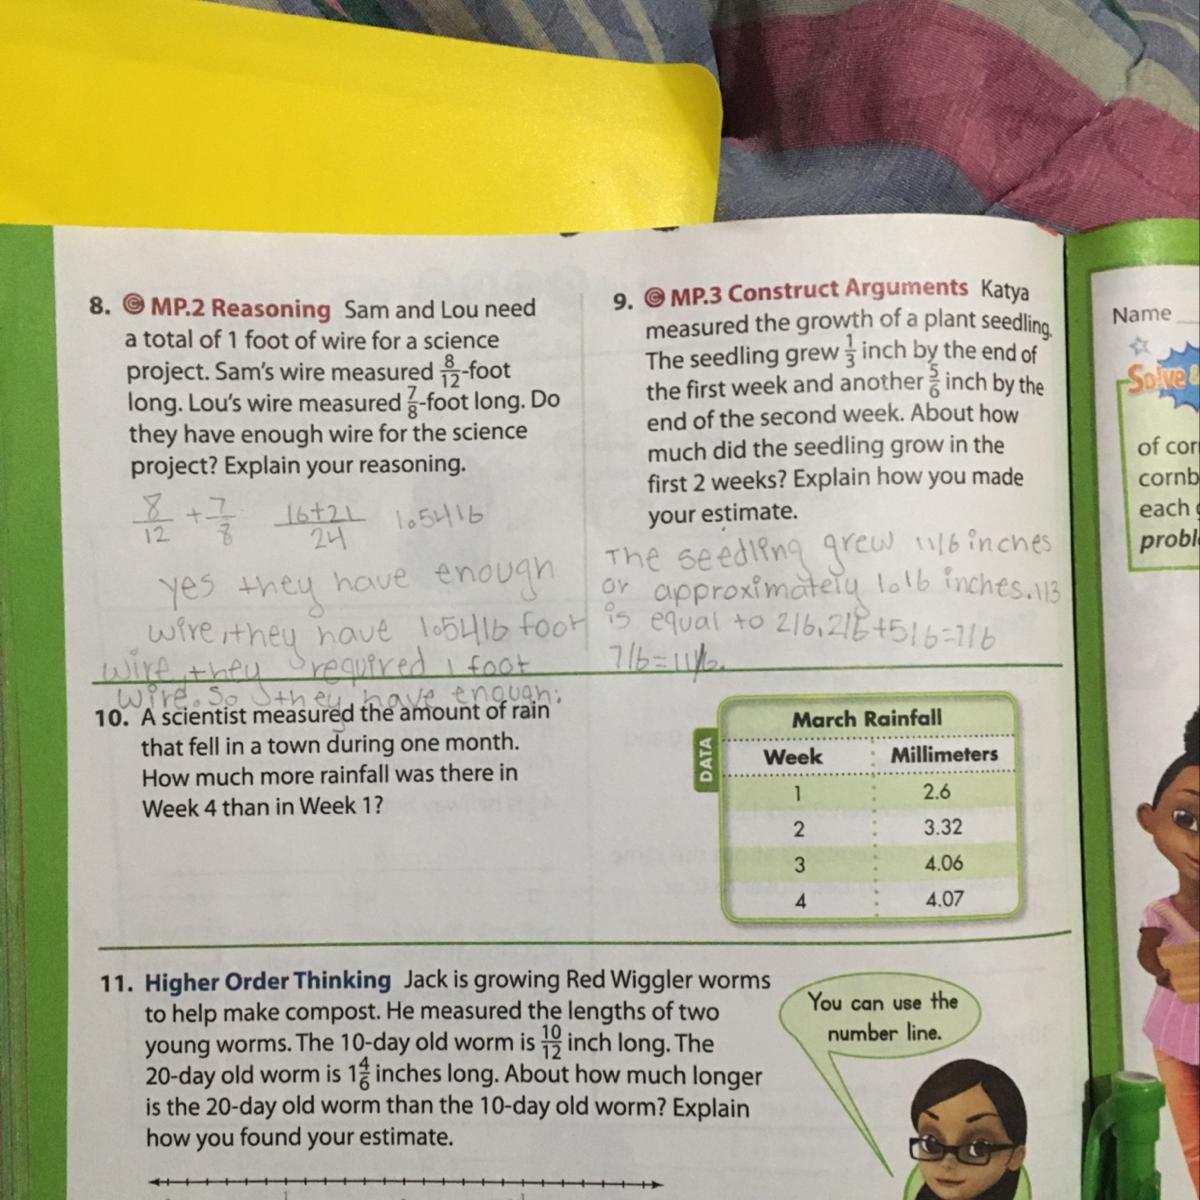 8. © MP.2 Reasoning Sam and Lou need
a total of 1 foot of wire for a science
project. Sam's wire measured 8/12-foot
long. Lou's wire measured 7/8-foot long. Do
they have enough wire for the science
project? Explain your reasoning.
8/12 + 7/8 16+21/24 1.5416
yes they have enough
wire, they have 1.5416 foot
wire, they required 1 foot
wire. so they have enough.
9. © MP.3 Construct Arguments Katya
measured the growth of a plant seedling.
The seedling grew 1/3 inch by the end of
the first week and another 5/6 inch by the
end of the second week. About how
much did the seedling grow in the
first 2 weeks? Explain how you made
your estimate.
The seedling grew 11/6 inches
or approximately 1.16 inches. 1/3
is equal to 2/6, 2/6+5/6=7/6
7/6=11/6.
10. A scientist measured the amount of rain
that fell in a town during one month.
How much more rainfall was there in
Week 4 than in Week 1?
DATA
March Rainfall
Week Millimeters
1 2.6
2 3.32
3 4.06
4 4.07
11. Higher Order Thinking Jack is growing Red Wiggler worms
to help make compost. He measured the lengths of two
young worms. The 10-day old worm is 10/12 inch long. The
20-day old worm is 1 4/6 inches long. About how much longer
is the 20-day old worm than the 10-day old worm? Explain
how you found your estimate.
You can use the
number line.
Name
Solve
of cor
cornb
each
probl